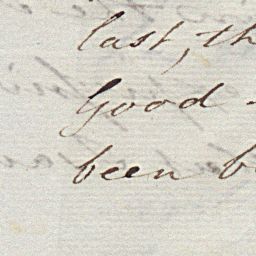 last, th
Good -
been b